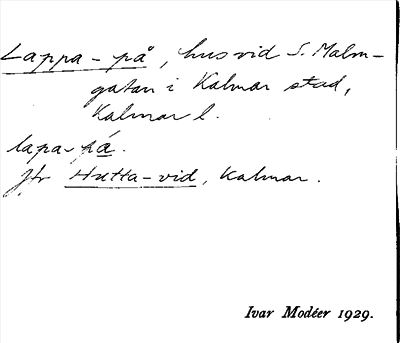 Lappa-på, hus vid S. Malm-
gatan i Kalmar stad,
Kalmar l.
lapa-på.
Jfr Hutta-vid, Kalmar.
Ivar Modéer 1929.